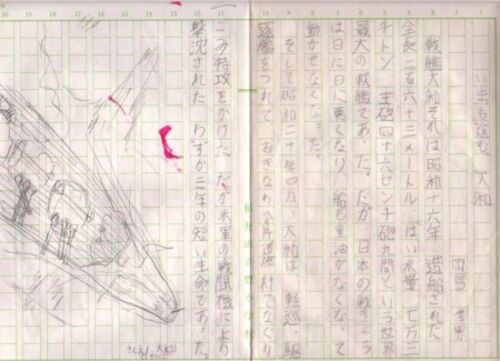 いまも進む 大和
戦艦大和それは昭和十六年 造船された
全長二百六十三メートル はい水量七万三
千トン 主砲四十六センチ砲九問という世界
最大の戦艦であった。だが日本の戦きょう
は日に日に悪くなり、船も重油がなくなって
動かせなくなった。
そして昭和二十年四月、大和は軽巡、駆
逐艦をつれて おきなわへ片道燃料でなぐり
こみ特攻をかけた。だが米軍の戦闘機により
撃沈された わずか三年の短い生命であった。
大和